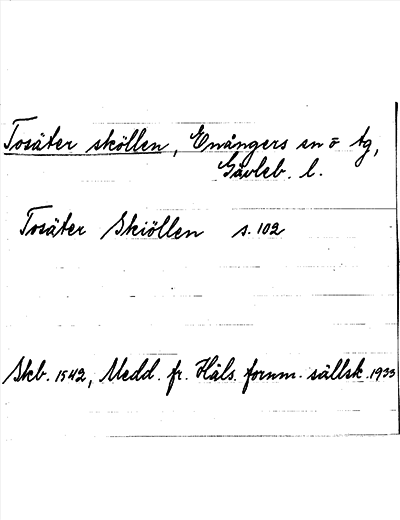 Tosäter sköllen, Enångers sn ö tg,
Gävleb. l.
Tosäter Skiöllen s. 102
Skb. 1542, Medd. fr. Häls. fornm. sällsk. 1933